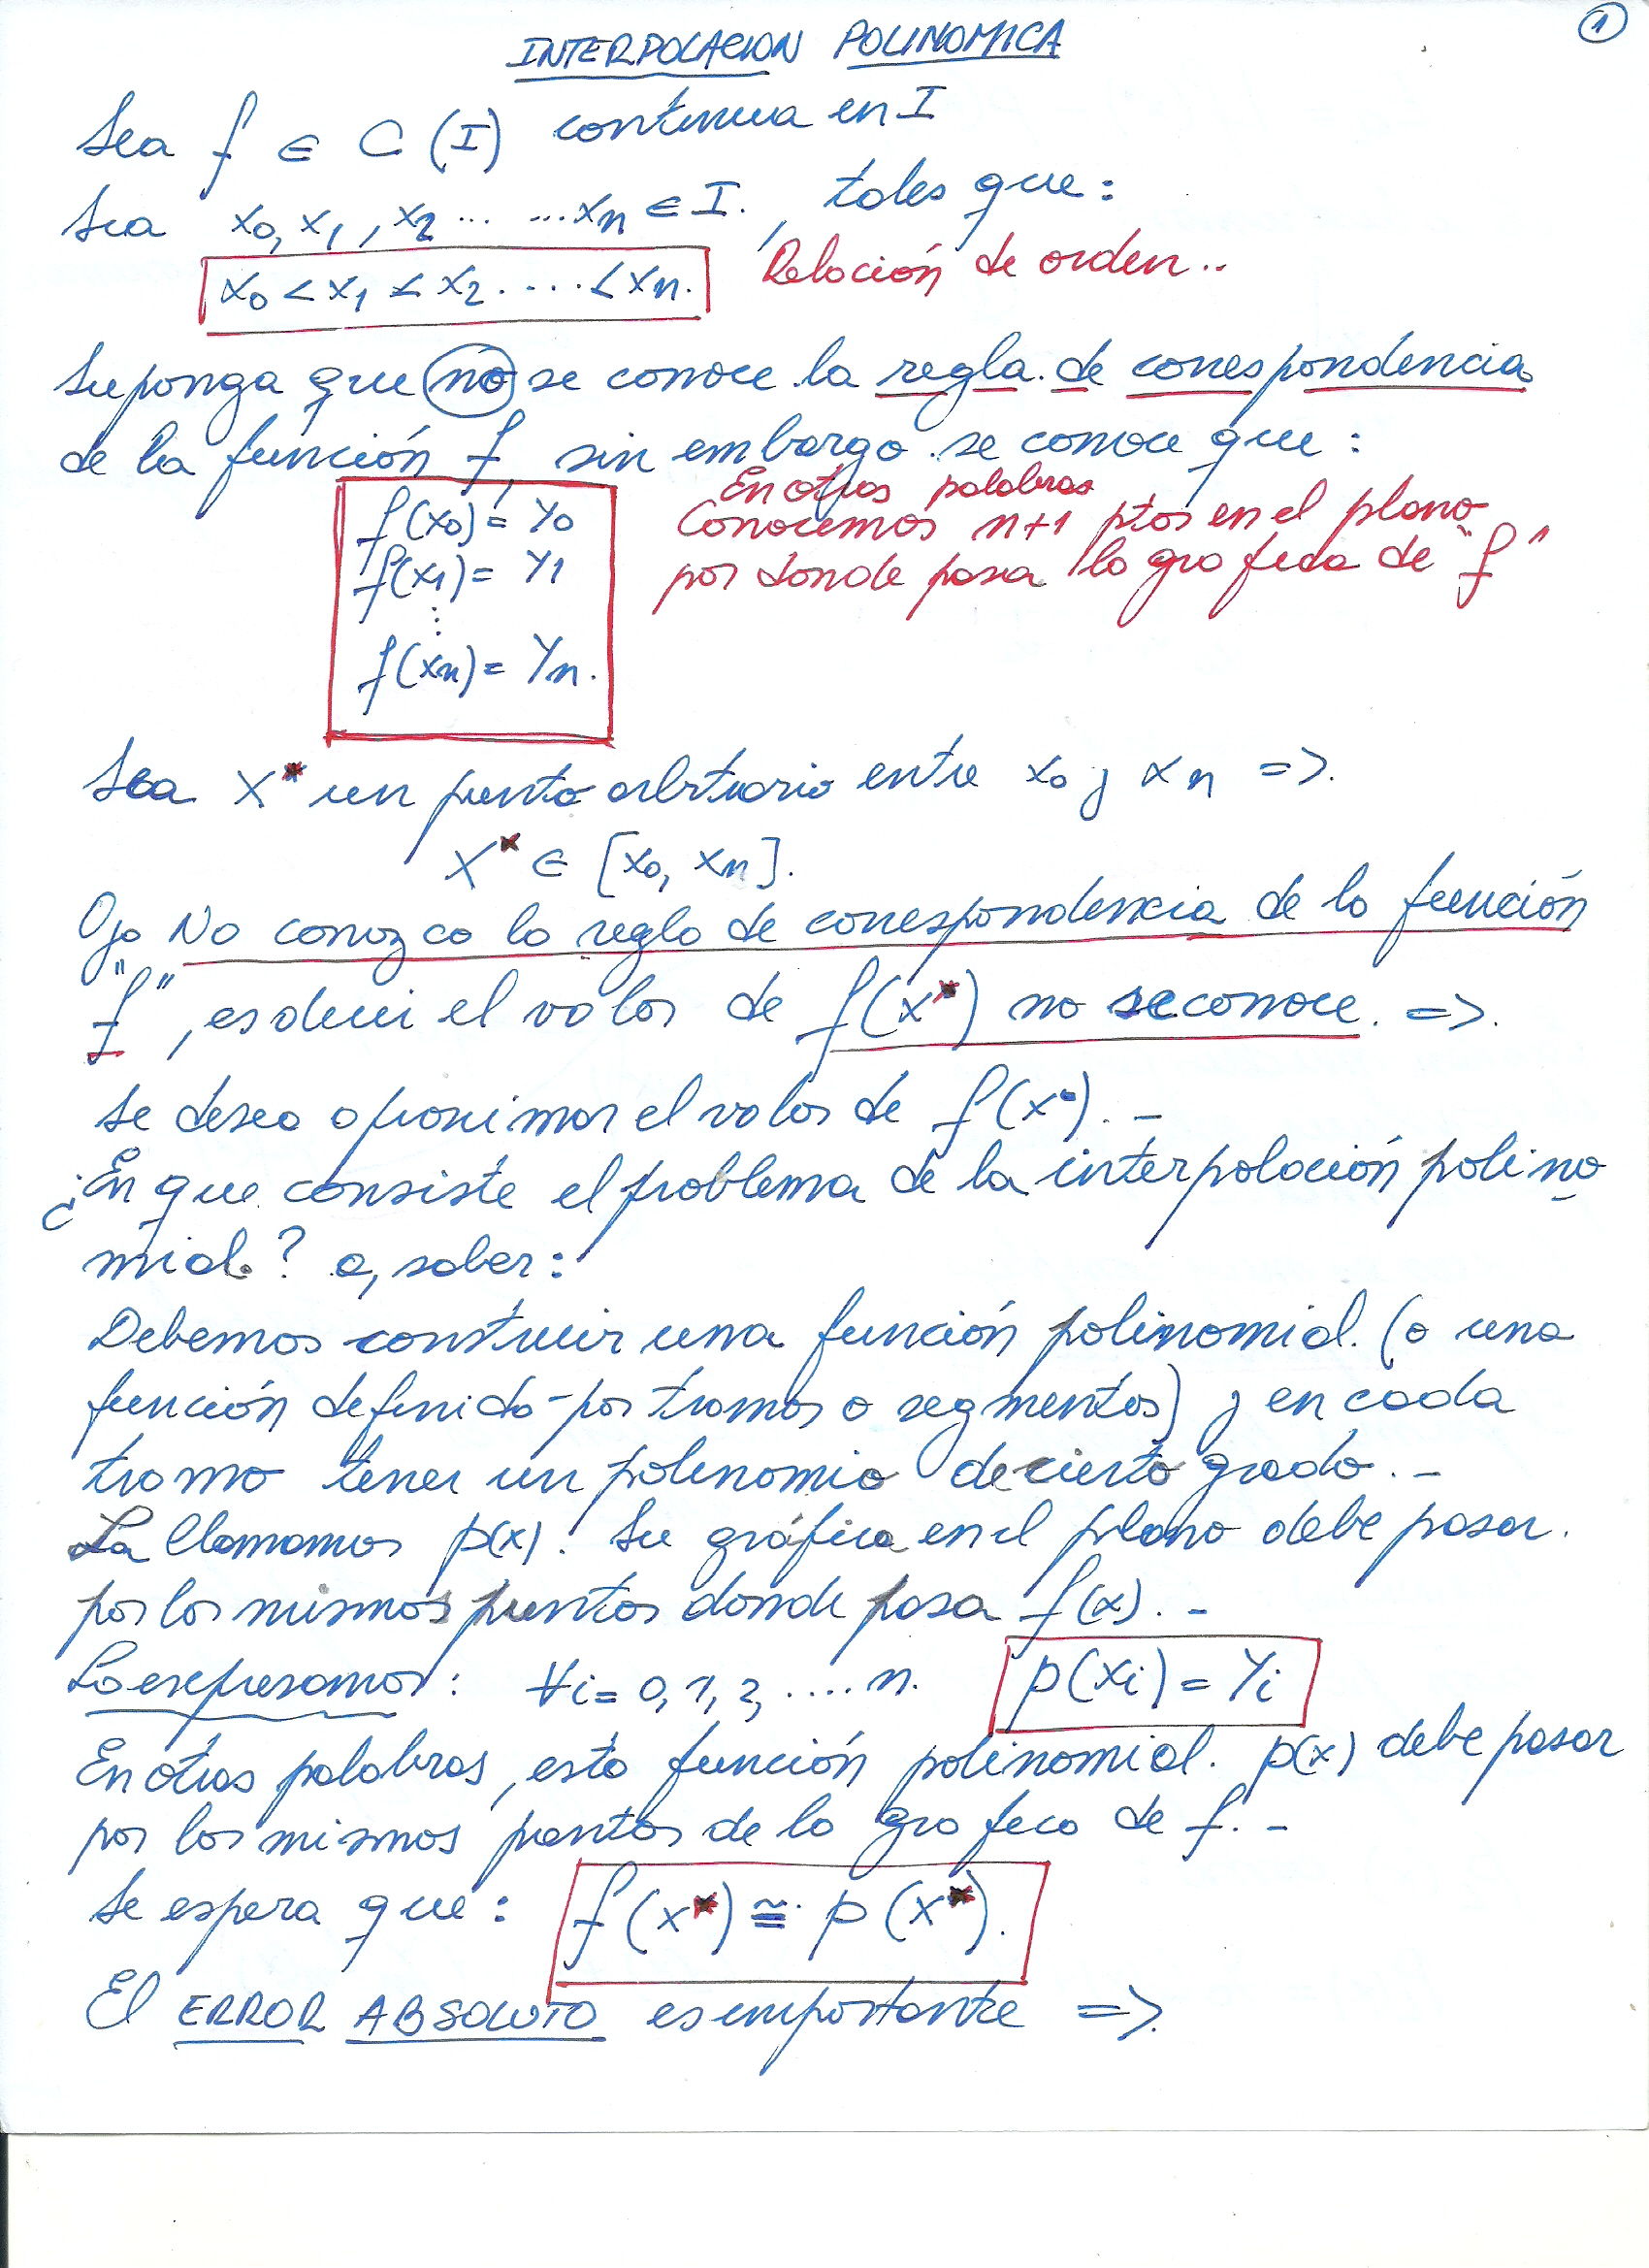 1
INTERPOLACION POLINOMICA
Sea f ∈ C (I) continua en I
Sea x0, x1, x2 ... ... xn ∈ I. , tales que:
x0 < x1 < x2 ..... < xn. Relación de orden..
Suponga que no se conoce la regla de correspondencia
de la función f, sin embargo se conoce que:
f(x0) = y0
f(x1) = y1
⋮
f(xn) = yn.
En otras palabras
Conocemos n+1 ptos en el plano
por donde pasa la grafica de "f"
Sea x* un punto arbitrario entre x0 y xn =>.
x* ∈ [x0, xn].
Ojo No conozco la regla de correspondencia de la función
"f", es decir el valor de f(x*) no se conoce. =>.
se desea aproximar el valor de f(x*). -
¿En que consiste el problema de la interpolación polino
mial? a, saber:
Debemos construir una función polinomial. (o una
función definida - por tramos o segmentos) y en cada
tramo tener un polinomio de cierto grado. -
La llamamos p(x). Su gráfica en el plano debe pasar.
por los mismos puntos donde pasa f(x). -
Lo expresamos: ∀i = 0, 1, 2, .... n. p(xi) = yi
En otras palabras, esta función polinomial. p(x) debe pasar
por los mismos puntos de la grafica de f. -
Se espera que: f(x*) ≅ p(x*).
El ERROR ABSOLUTO es importante =>.